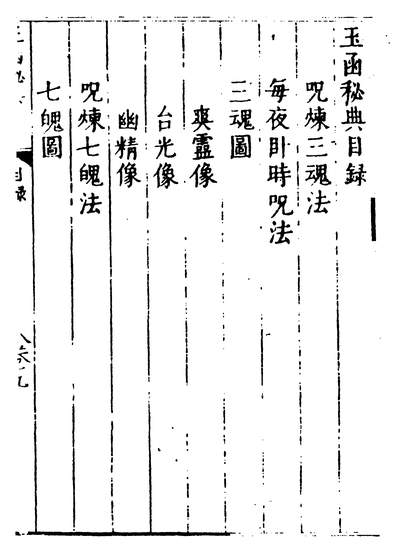 玉函秘典目録
呪煉三魂法
每夜卧時呪法
三魂圖
爽靈像
台光像
幽精像
呪煉七魄法
七魄圖
目録